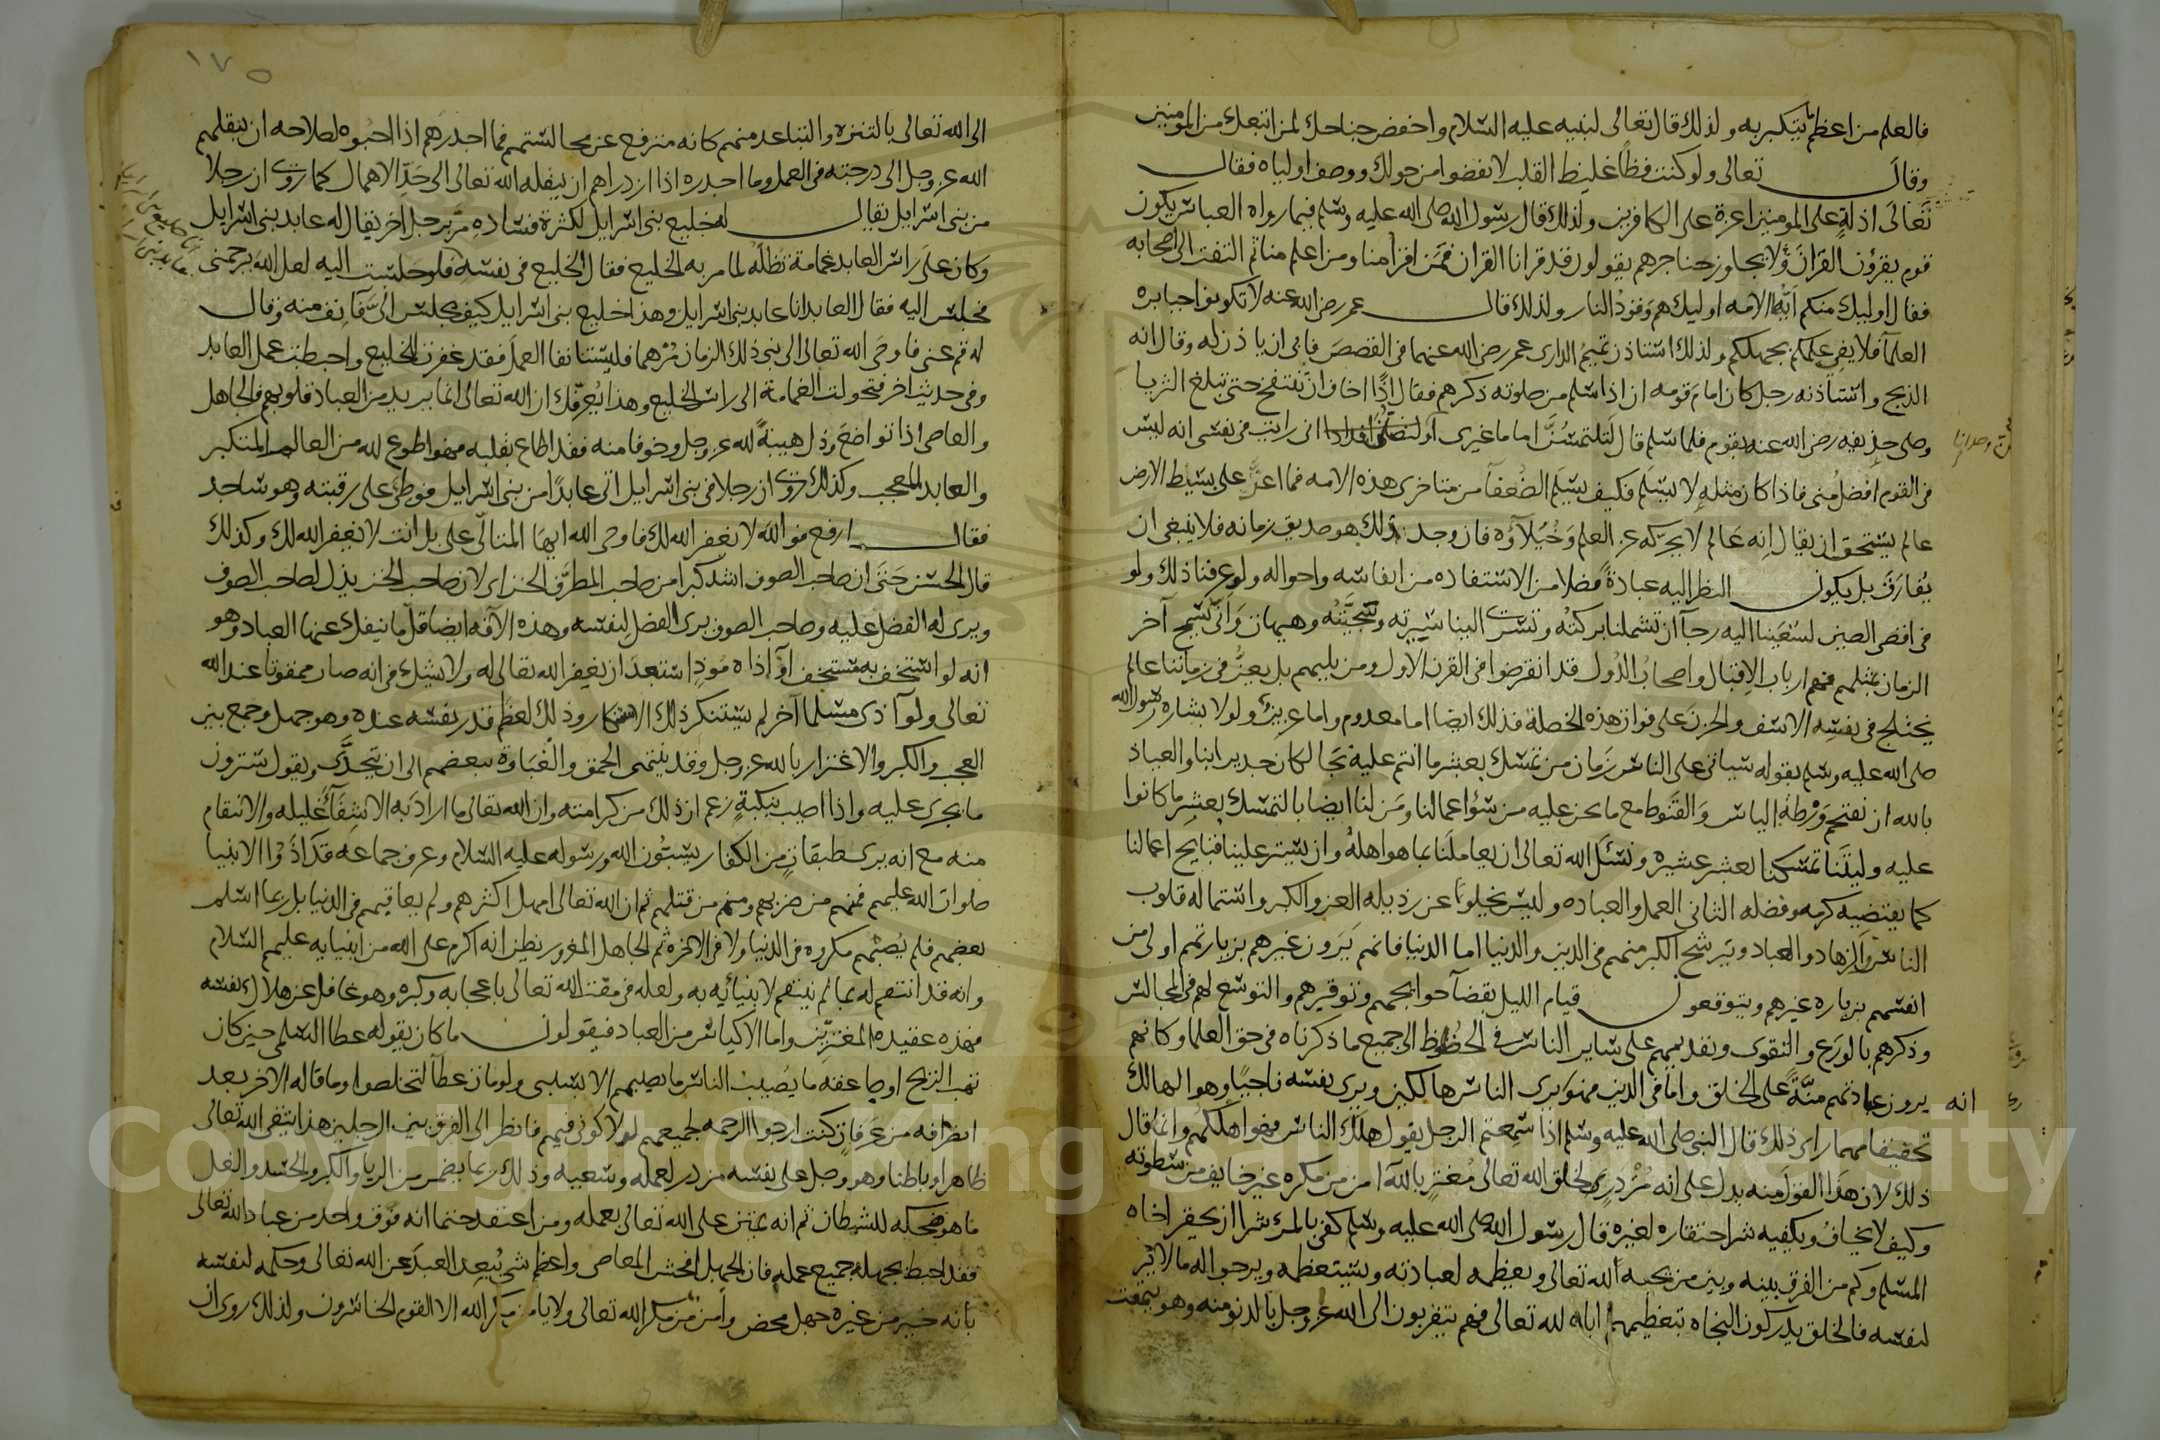 فالعلم من اعظم ما يتكبر به ولذلك قال تعالى لنبيه عليه السلام واخفض جناحك لمن اتبعك من المومنين
وقال تعالى ولو كنت فظا غليظ القلب لانفضوا من حولك ووصف اولياه فقال
تعالى اذلة على المومنين اعزة على الكافرين ولذلك قال رسول الله صلى الله عليه وسلم فيما رواه العباس يكون
قوم يقرؤن القرآن ولا يجاوز حناجرهم يقولون قد قرانا القران فمن اقرا منا ومن اعلم منا ثم التفت الى اصحابه
فقال اوليك منكم ايها الامه اوليك هم وقود النار ولذلك قال عمر رضي الله عنه لا تكونوا جبابره
العلمآ فلا يفي علمكم بجهلكم ولذلك استاذن تميم الدارى عمر رضي الله عنهما في القصص فابى ان ياذن له وقال انه
الذبح واستأذنه رجل كان امام قومه ان اذا سلم من صلوته ذكرهم فقال اني اخاف ان تنتفخ حتى تبلغ الثريا
وصلى حذيفه رضي الله عنه بقوم فلما سلم قال لتلتمسن اماما غيرى او لتصلن انى رايت في نفسى انه ليس
في القوم افضل منى فاذا كان مثله لا يسلم فكيف يسلم الضعفآ من متاخرى هذه الامه فما اعز على بسيط الارض
عالم يستحق ان يقال انه عالم لا يحركه عز العلم وخيلآؤه فان وجد ذلك فهو صديق زمانه فلا ينبغى ان
يفارق بل يكون النظر اليه عبادة فضلا من الاستفاده من انفاسه واحواله ولو عرفنا ذلك ولو
في اقصى الصين لسعينا اليه رجآ ان تشملنا بركته وتسرى الينا سيرته وسجيته وهيهات وانى يسمح آخر
الزمان بمثلهم فهم ارباب الاقبال واصحاب الدول قد انقرضوا في القرن الاول ومن يليهم بل يعز في زماننا عالم
يختلج في نفسه الاسف والحزن على فوات هذه الخصلة فذلك ايضا اما معدوم واما عزيز ولولا بشاره رسول الله
صلى الله عليه وسلم بقوله سياتى على الناس زمان من تمسك بعشر ما انتم عليه نجا لكان جديرا بنا والعياذ
بالله ان نقتحم ورطة الياس والقنوط مع ما نحن عليه من سؤ اعمالنا ومن لنا ايضا بالتمسك بعشر ما كانوا
عليه وليتنا تمسكنا بعشر عشيره ونسئل الله تعالى ان يعاملنا بما هو اهله وان يستر علينا قبايح اعمالنا
كما يقتضيه كرمه وفضله الثانى العمل والعباده وليس يخلوا عن رذيله العز والكبر واستماله قلوب
الناس الزهاد والعباد ويترشح الكبر منهم في الدين والدنيا اما الدنيا فانهم يرون غيرهم بزيارتهم اولى من
انفسهم بزياره غيرهم ويتوقعون قيام الليل بقضآ حوايجهم وتوقيرهم والتوسع لهم في المجالس
وذكرهم بالورع والتقوى وتقديمهم على ساير الناس في الحظوظ الى جميع ما ذكرناه في حق العلما وكانهم
يرون عبادتهم منة على الخلق واما في الدين فهو ان يرى الناس هالكين ويرى نفسه ناجيا وهو الهالك
انه
تحقيقا مهما راى ذلك قال النبي صلى الله عليه وسلم اذا سمعتم الرجل يقول هلك الناس فهو اهلكهم وانما قال
ذلك لان هذا القول منه يدل على انه مزدرى لخلق الله تعالى مغتر بالله امن من مكره غير خايف من سطوته
وكيف لا يخاف ويكفيه شرا احتقاره لغيره قال رسول الله صلى الله عليه وسلم كفى بالمرء شرا ان يحقر اخاه
المسلم وكم من الفرق بينه وبين من يحبه الله تعالى ويعظمه لعبادته ويستعظمه ويرجوا له ما لا يرجو
لنفسه فالخلق يدركون النجاه بتعظيمهم اياه لله تعالى فهم يتقربون الى الله عز وجل بالدنو منه وهو يتمقت
١٧٥
الى الله تعالى بالتنزه والتباعد منهم كانه مترفع عن مجالستهم فما اجدرهم اذا احبوه لصلاحه ان ينقلهم
الله عز وجل الى درجته في العمل وما اجدره اذا ازدراهم ان ينقله الله تعالى الى حد الاهمال كما روى ان رجلا
من بنى اسرايل يقال له خليع بنى اسرايل لكثرة فساده مر برجل اخر يقال له عابد بنى اسرايل
وكان على راس العابد غمامة تظله لما مر به الخليع فقال الخليع في نفسه فلو جلست اليه لعل الله يرحمنى
فجلس اليه فقال العابد انا عابد بنى اسرايل وهذا خليع بنى اسرايل كيف يجلس الى فانف منه وقال
له قم عنى فاوحى الله تعالى الى نبى ذلك الزمان مرهما فليستانفا العمل فقد غفرت للخليع واحبطت عمل العابد
وفى حديث اخر فتحولت الغمامة الى راس الخليع وهذا يعرفك ان الله تعالى انما يريد من العباد قلوبهم فالجاهل
والعاصى اذا تواضع وذل هيبة لله عز وجل وخوفا منه فقد اطاع بقلبه فهو اطوع لله من العالم المتكبر
والعابد المعجب وكذلك روى ان رجلا في بنى اسرايل اتى عابدا من بنى اسرايل فوطئ على رقبته وهو ساجد
فقال ارفع فوالله لا يغفر الله لك فاوحى الله ايها المتألى على بل انت لا يغفر الله لك وكذلك
قال الحسن حتى ان صاحب الصوف اشد كبرا من صاحب المطرف الخز اى لان صاحب الخز يذل لصاحب الصوف
ويرى له الفضل عليه وصاحب الصوف يرى الفضل لنفسه وهذه الآفه ايضا قل ما ينفك عنها العباد وهو
انه لو استخف به مستخف او آذاه موذ استبعد ان يغفر الله تعالى له ولا يشك في انه صار ممقوتا عند الله
تعالى ولو آذى مسلما آخر لم يستنكر ذلك الاستنكار وذلك لعظم قدر نفسه عنده وهو جهل وجمع بين
العجب والكبر والاغترار بالله عز وجل وقد ينتهى الحمق والغباوة ببعضهم الى ان يتحدى ويقول سترون
ما يجرى عليه واذا اصيب بنكبة زعم ان ذلك من كرامته وان الله تعالى ما اراد به الا شفآ غليله والانتقام
منه مع انه يرى طبقات من الكفار يسبون الله ورسوله عليه السلام وعرف جماعه قد آذوا الانبيا
صلوات الله عليهم فمنهم من ضربهم ومنهم من قتلهم ثم ان الله تعالى امهل اكثرهم ولم يعاقبهم في الدنيا بل ربما اسلم
بعضهم فلم يصبهم مكروه في الدنيا ولا في الاخره ثم الجاهل المغرور يظن انه اكرم على الله من انبيايه عليهم السلام
وانه قد انتقم له بما لم ينتقم لانبيائه به ولعله في مقت الله تعالى باعجابه وكبره وهو غافل عن هلاك نفسه
فهذه عقيده المغترين واما الاكياس من العباد فيقولون ما كان يقوله عطا السلمى حين كان
تهب الريح او صاعقه ما يصيب الناس ما يصيبهم الا بسببى ولو مات عطآ لتخلصوا وما قاله الاخر بعد
انصرافه من عرفات كنت ارجوا الرحمه لجميعهم لولا كونى فيهم فانظر الى الفرق بين الرجلين هذا اتقى الله تعالى
ظاهرا وباطنا وهو وجل على نفسه مزدر لعمله وسعيه وذلك ربما يضمر من الريا والكبر والحسد والغل
ما هو ضحكه للشيطان ثم انه يمتن على الله تعالى بعمله ومن اعتقد حتما انه فوق واحد من عباد الله تعالى
فقد احبط بجهله جميع عمله فان الجهل افحش المعاصى واعظم شى يبعد العبد عن الله تعالى وحكمه لنفسه
بانه خير من غيره جهل محض وأمن من مكر الله تعالى ولا يامن مكر الله الا القوم الخاسرون ولذلك روى ان
Copyright © King Saud University